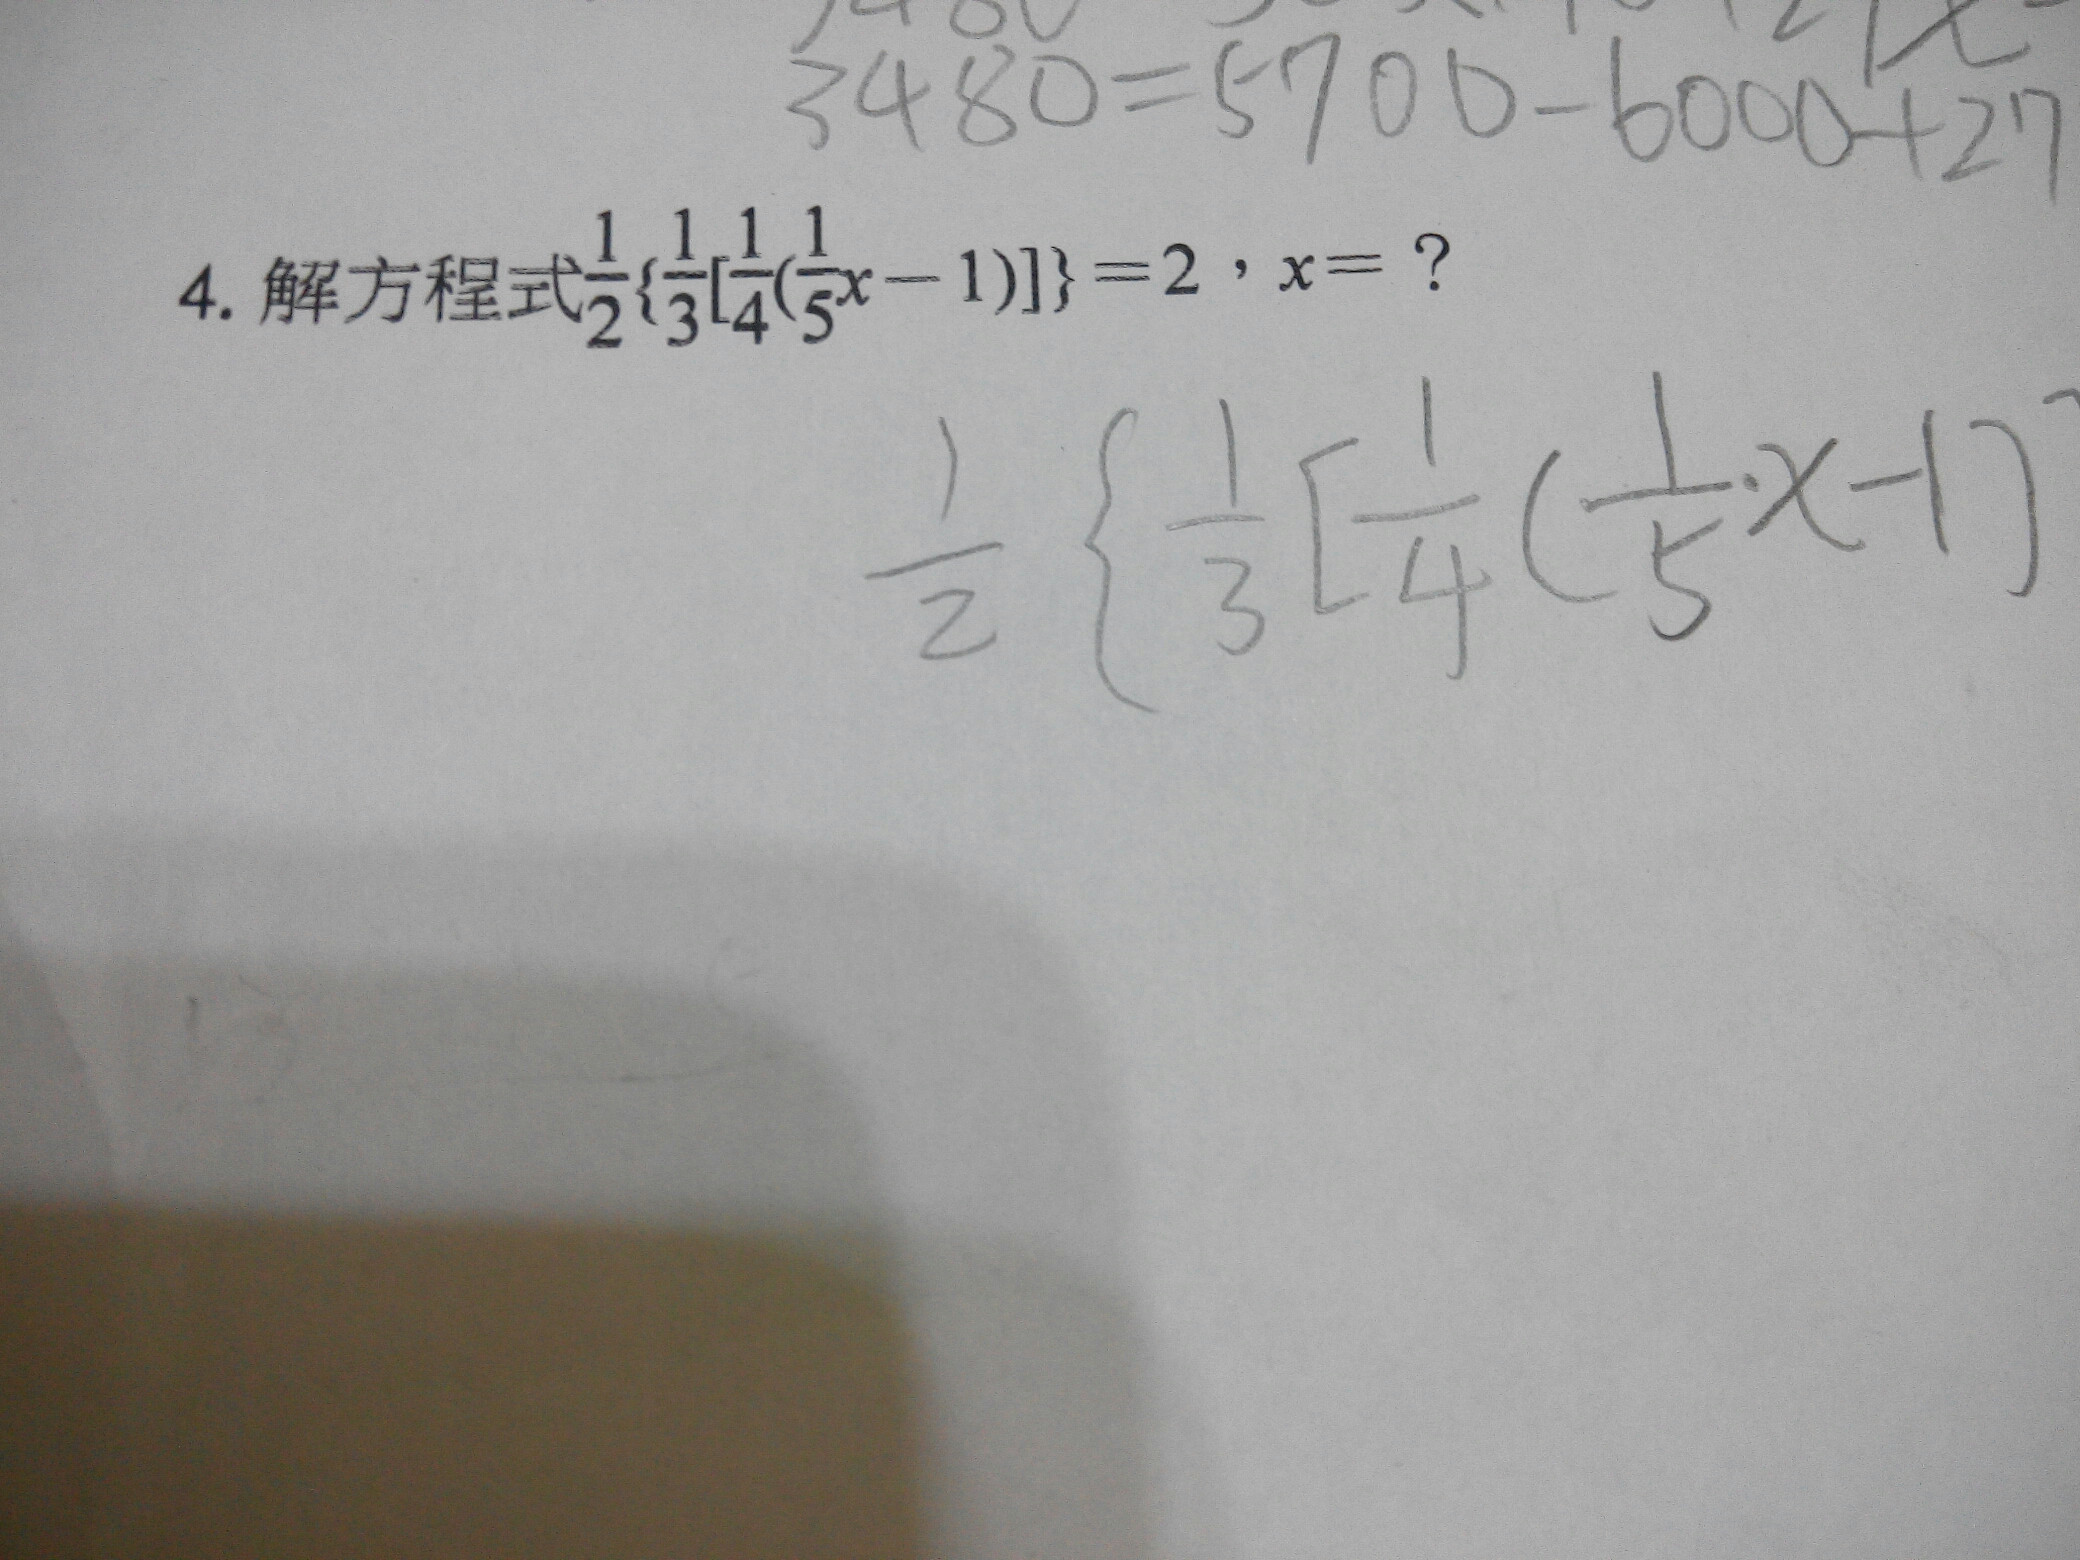 3480=5700-6000+27
4. 解方程式\frac{1}{2}{\frac{1}{3}[\frac{1}{4}(\frac{1}{5}x－1)]}＝2，x＝？
\frac{1}{2}{\frac{1}{3}[\frac{1}{4}(\frac{1}{5}·x-1)